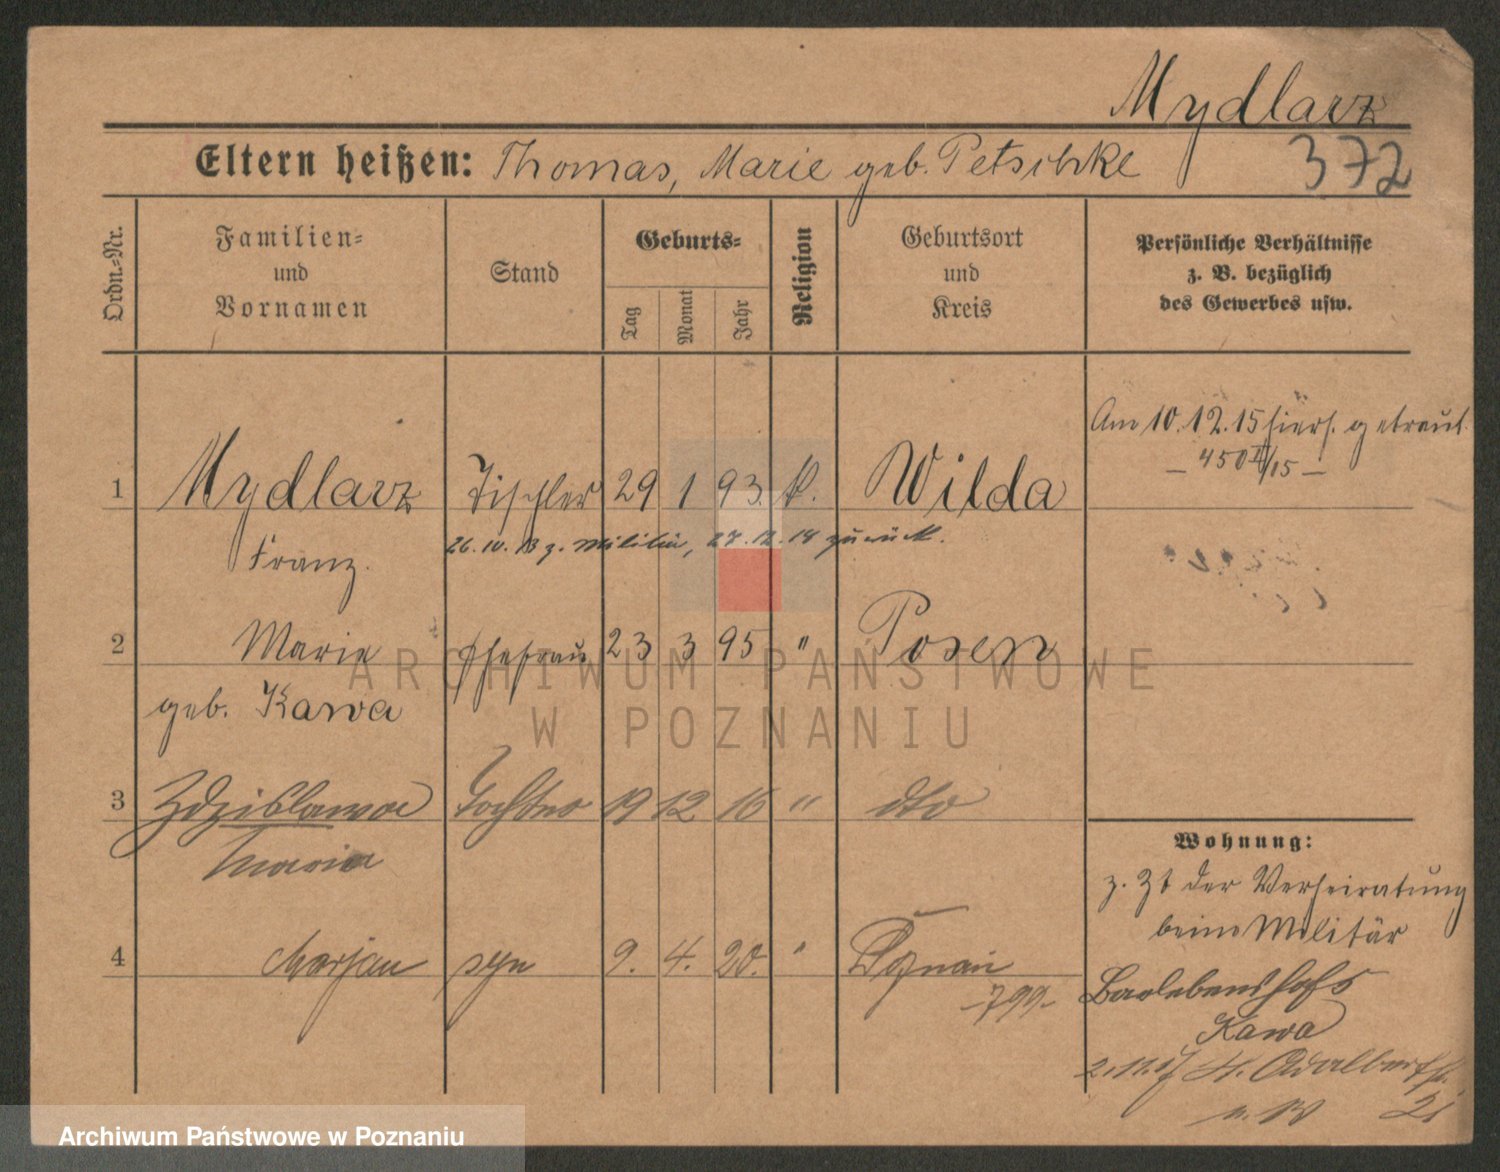 Mydlarz
Eltern heißen: Thomas, Marie geb. Petschke
372
Ordn.-Nr.
Familien-
und
Vornamen
Stand
Geburts-
Tag
Monat
Jahr
Religion
Geburtsort
und
Kreis
Persönliche Verhältnisse
z. B. bezüglich
des Gewerbes usw.
Am 10.12.15 hiers. getraut
1 Mydlarz Tischler 29 1 93. k. Wilda
Franz.
26.10.13 z. Militär, 27.12.18 zurück.
2 Marie Ehefrau 23 3 95 " Posen
geb. Kawa
3 Zdzislawa Tochter 19 12 16 " dto
Maria
4 Marjan syn 9. 4. 20. " Poznań
-799-
Wohnung:
z. Zt der Verheiratung
beim Militär
Kawa
2.11.17 St. Adalbertstr.
21
ARCHIWUM PAŃSTWOWE
W POZNANIU
Archiwum Państwowe w Poznaniu